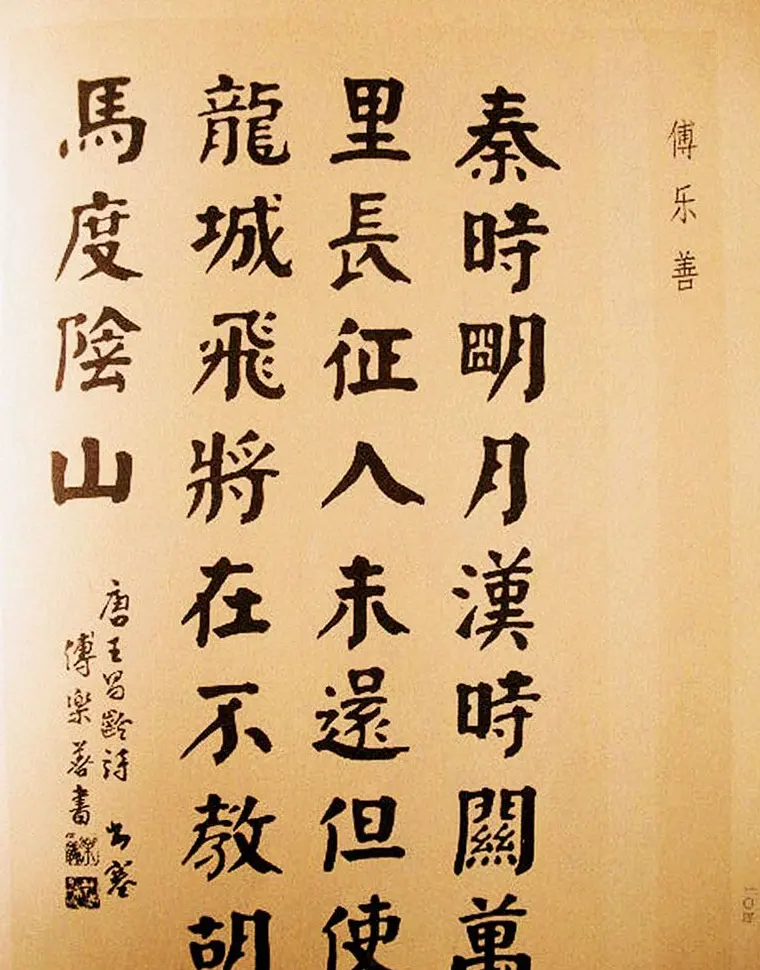 傅乐善
秦時明月漢時關萬
里長征人未還但使
龍城飛將在不教胡
馬度陰山
唐王昌齡詩 出塞
傅樂善書
一〇四